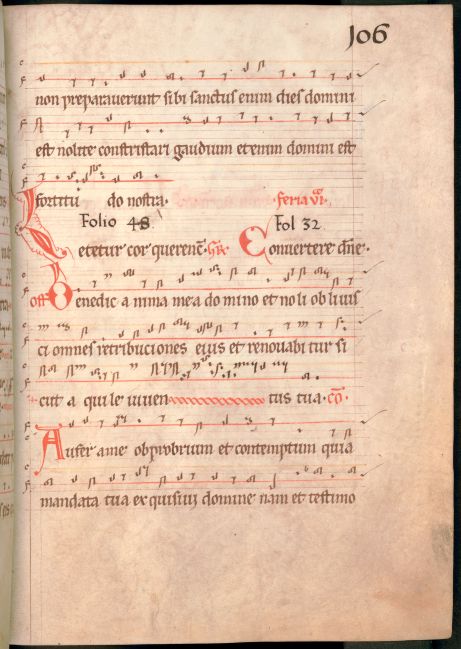 106
non preparaverunt sibi sanctus enim dies domini
est nolite constristari gaudium etenim domini est
fortitu do nostra. feria vi.
Folio 48. Fol 32
Letetur cor querenc̄. Gr̄. Convertere dn̄e.
off Benedic anima mea domino et noli oblivis
ci omnes retribuciones eius et renovabitur si
cut aquile iuven tus tua. cō.
Aufer a me obprobrium et contemptum quia
mandata tua exquisivi domine nam et testimo